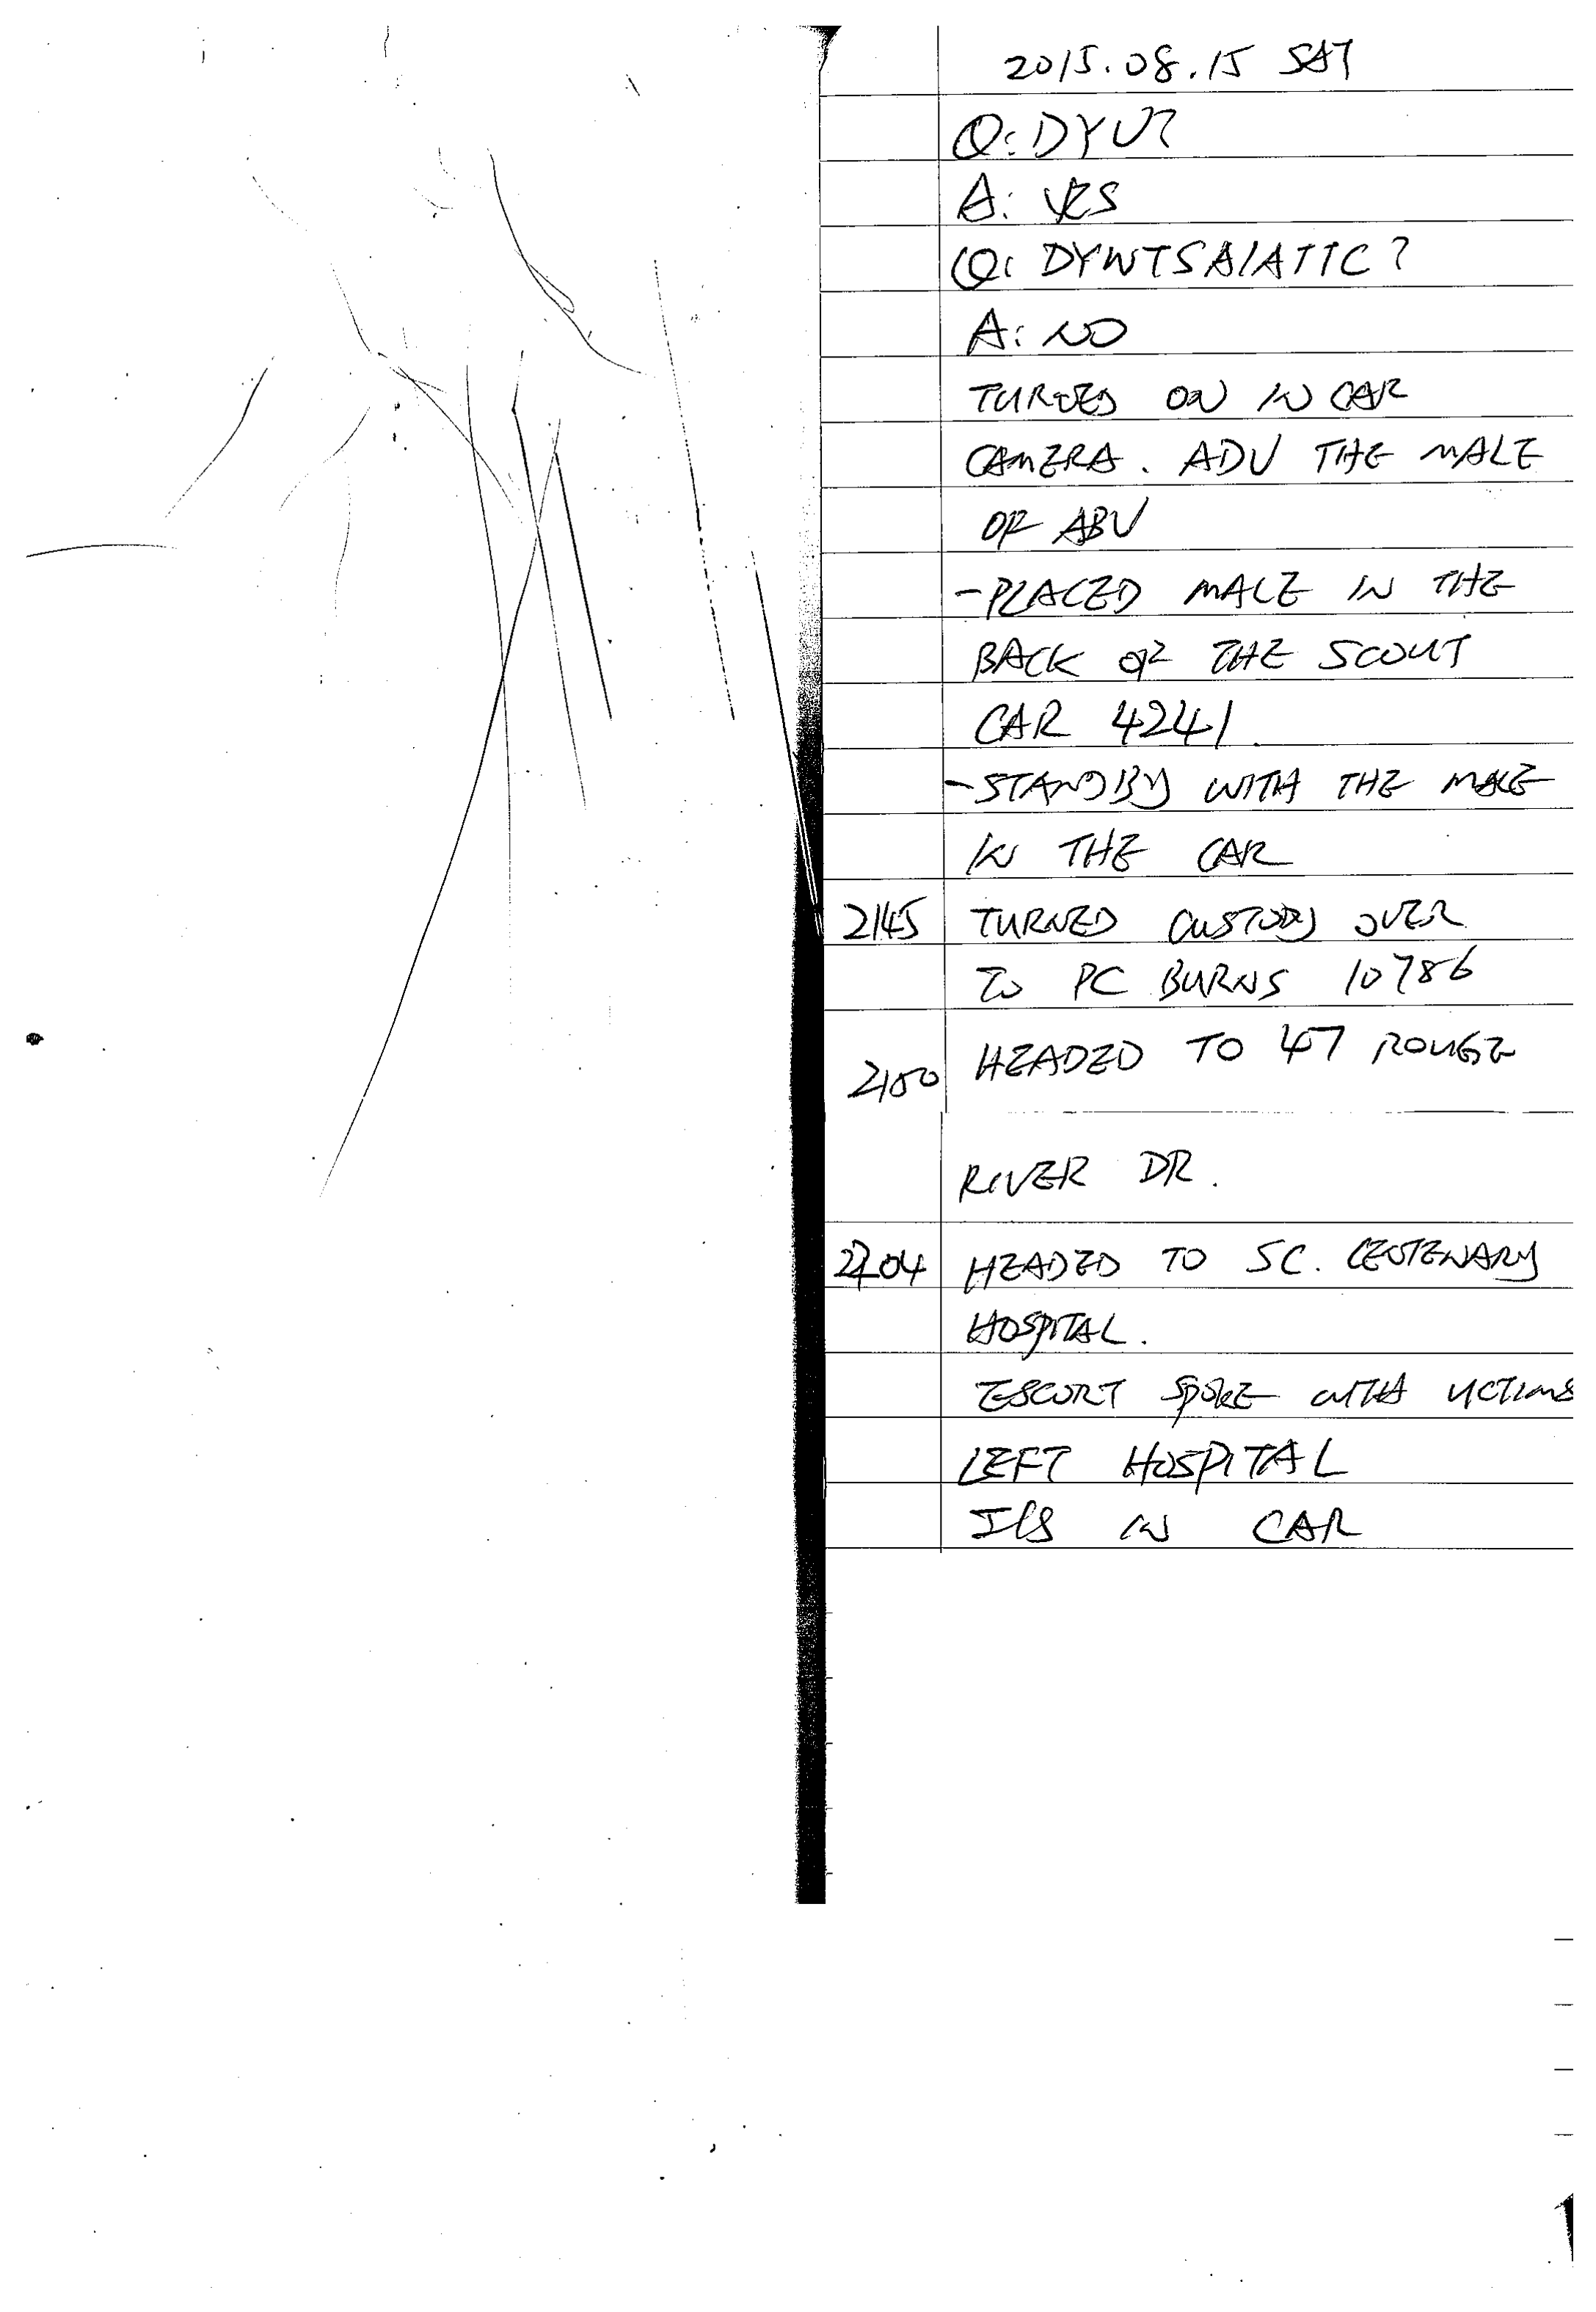 2015.08.15 SAT
Q: DYU?
A: YES
Q: DYWTSA/ATTC?
A: NO
TURNED ON IN CAR
CAMERA. ADV THE MALE
OF ABV
-PLACED MALE IN THE
BACK OF THE SCOUT
CAR 4241
-STANDBY WITH THE MALE
IN THE CAR
2145 TURNED CUSTODY OVER
TO PC BURNS 10786
2150 HEADED TO 47 ROUGE
RIVER DR.
2204 HEADED TO SC. CENTENARY
HOSPITAL.
ESCORT SPOKE WITH VICTIMS
LEFT HOSPITAL
IN CAR